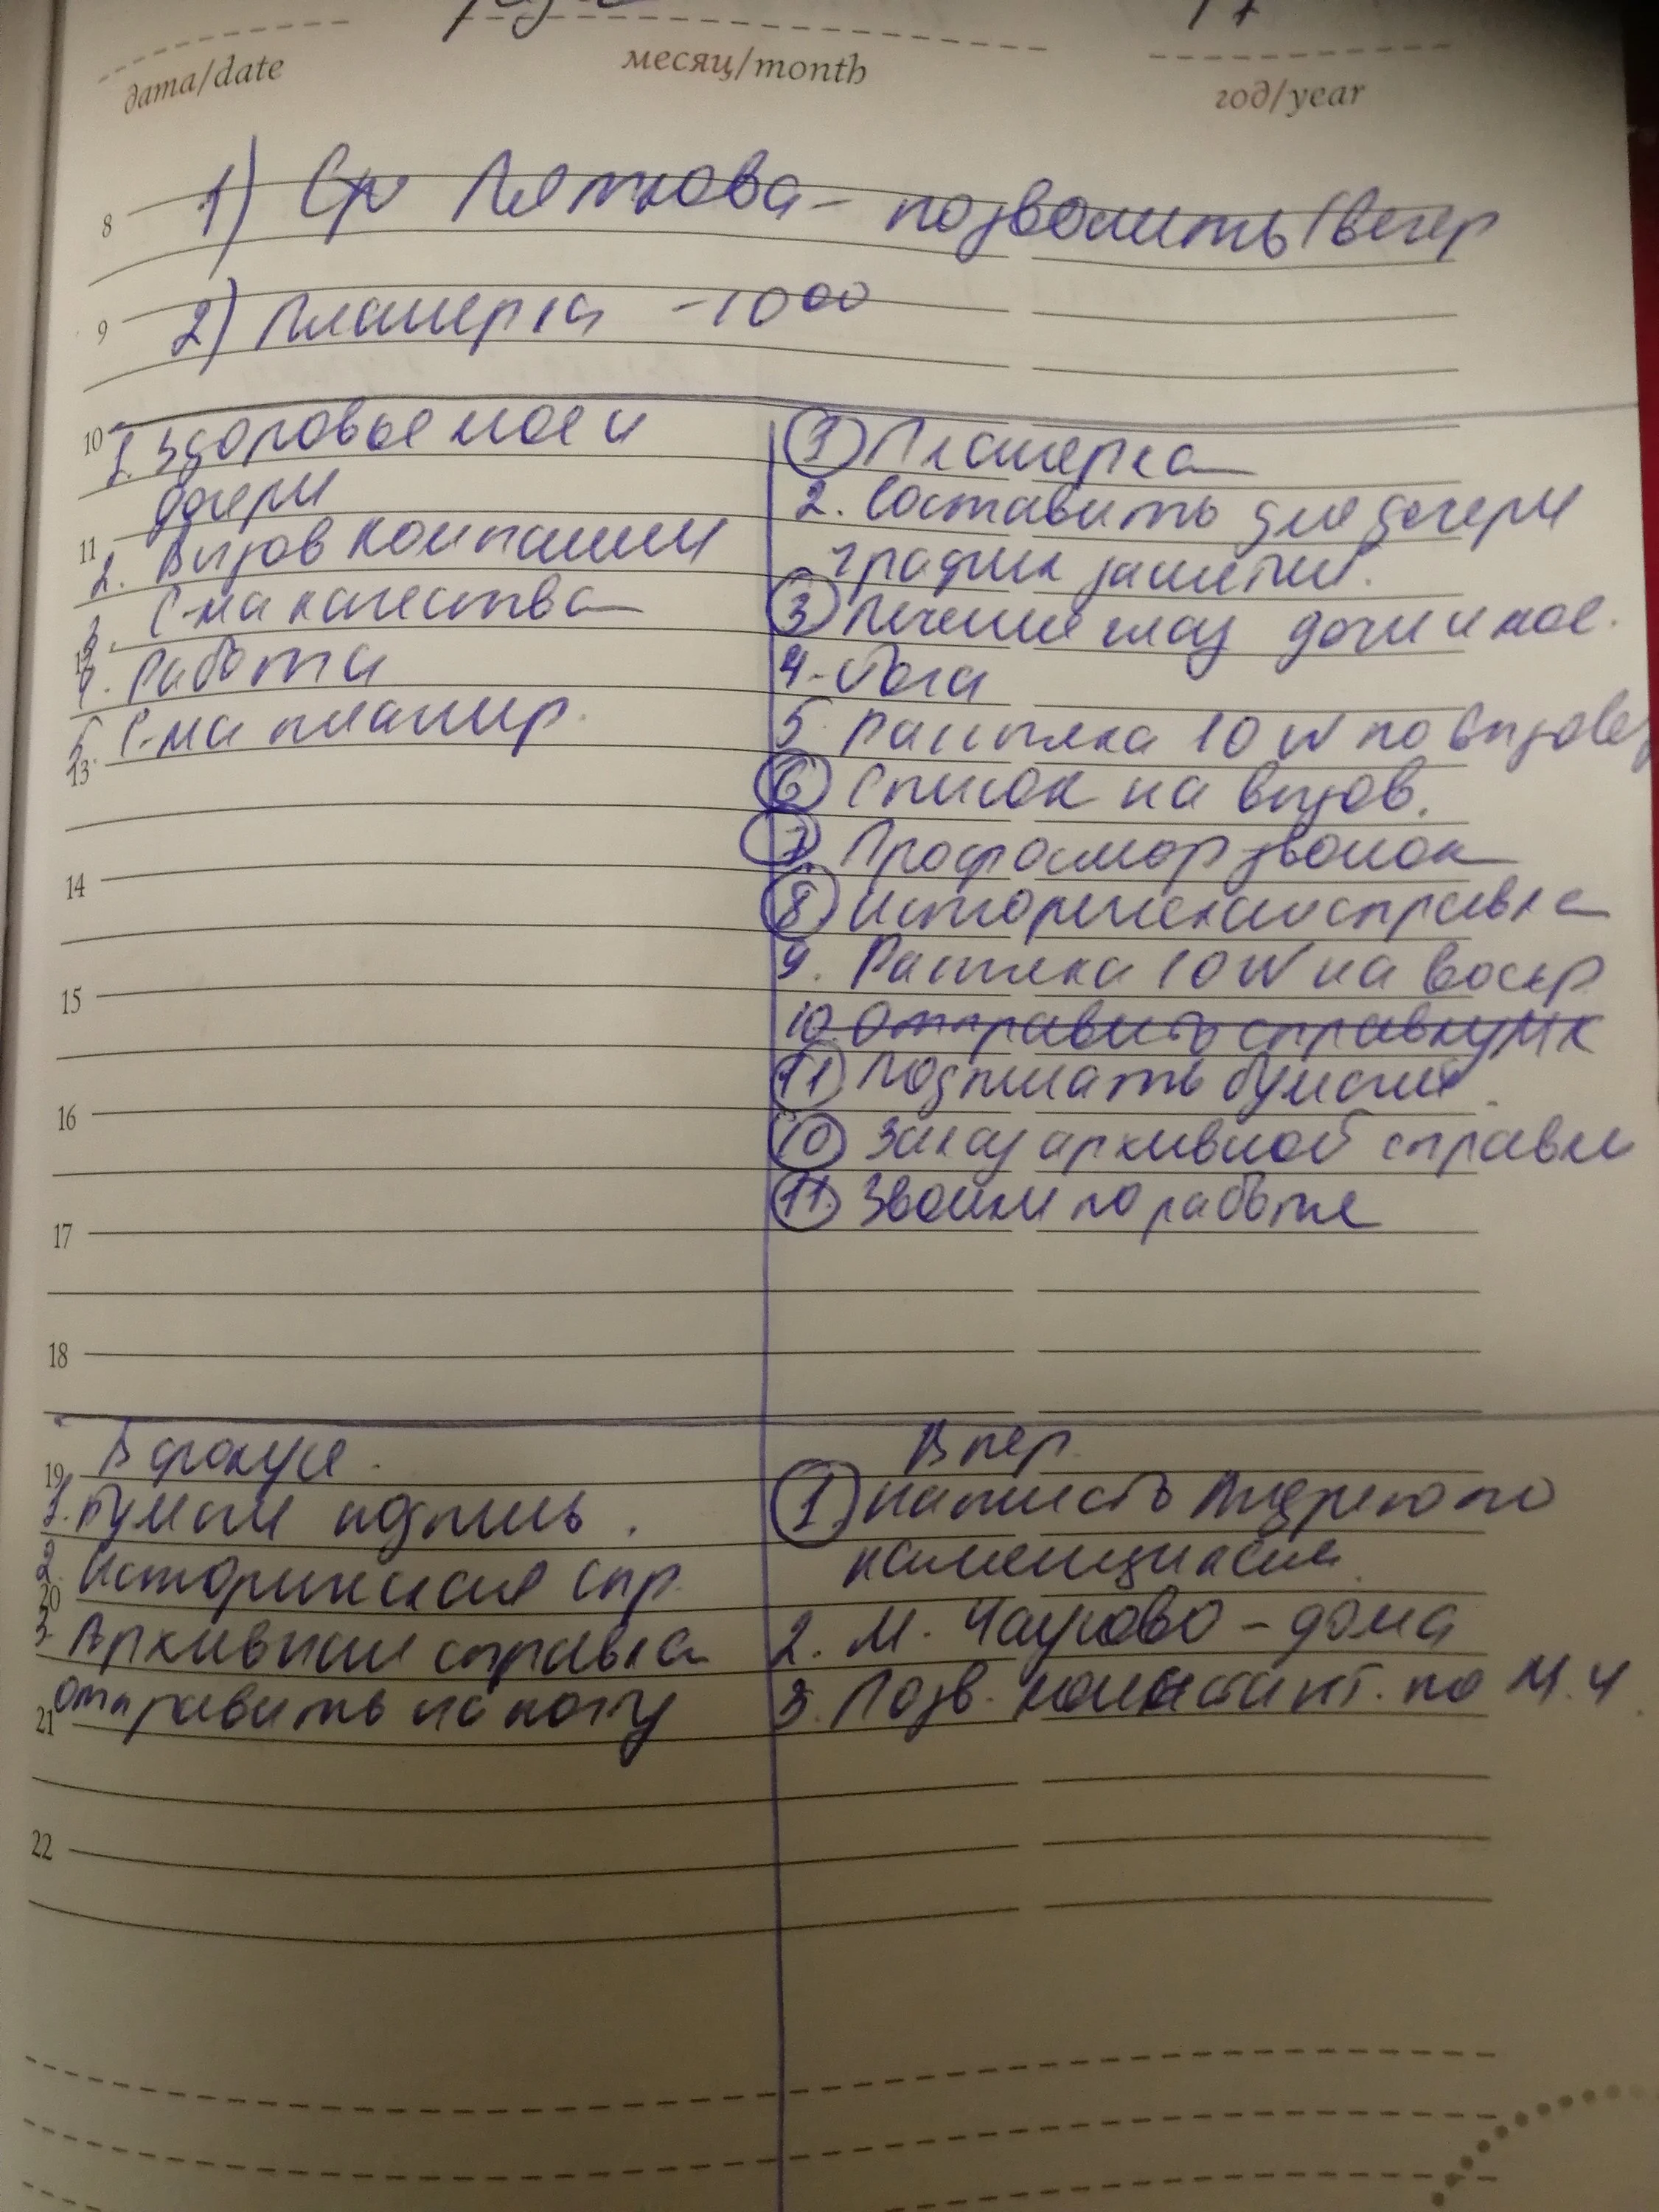 дата/date
месяц/month
год/year
8
1) Ср Пяткова - позвонить/вечер
9
2) Планерка - 10 00
10
1. Здоровье мое и
дочери
11
2. Вызов компании
3. С-ма качества
4. Работа
5. С-ма планир.
13
14
15
16
17
18
1 Планерка
2. Составить для дочери
график занятий.
3 Лечение глаз дочи и мое.
4. Йога
5. Рассылка 10 W по вызову
6 Список на вызов.
7. Профосмотр звонок
8. Историческая справка
9. Рассылка 10 W на воскр
10. Отправить справку МК
11 Подписать бумаги.
10 Заказ архивной справки
11. Звонки по работе
19
В фокусе.
1. Бумаги подпись.
2. Историческая спр.
20
3. Архивная справка
отправить на почту
21
22
В пер.
1. Написать Андрею по
2. М. Чаурово - дома
3. Позв. констант. по М.Ч